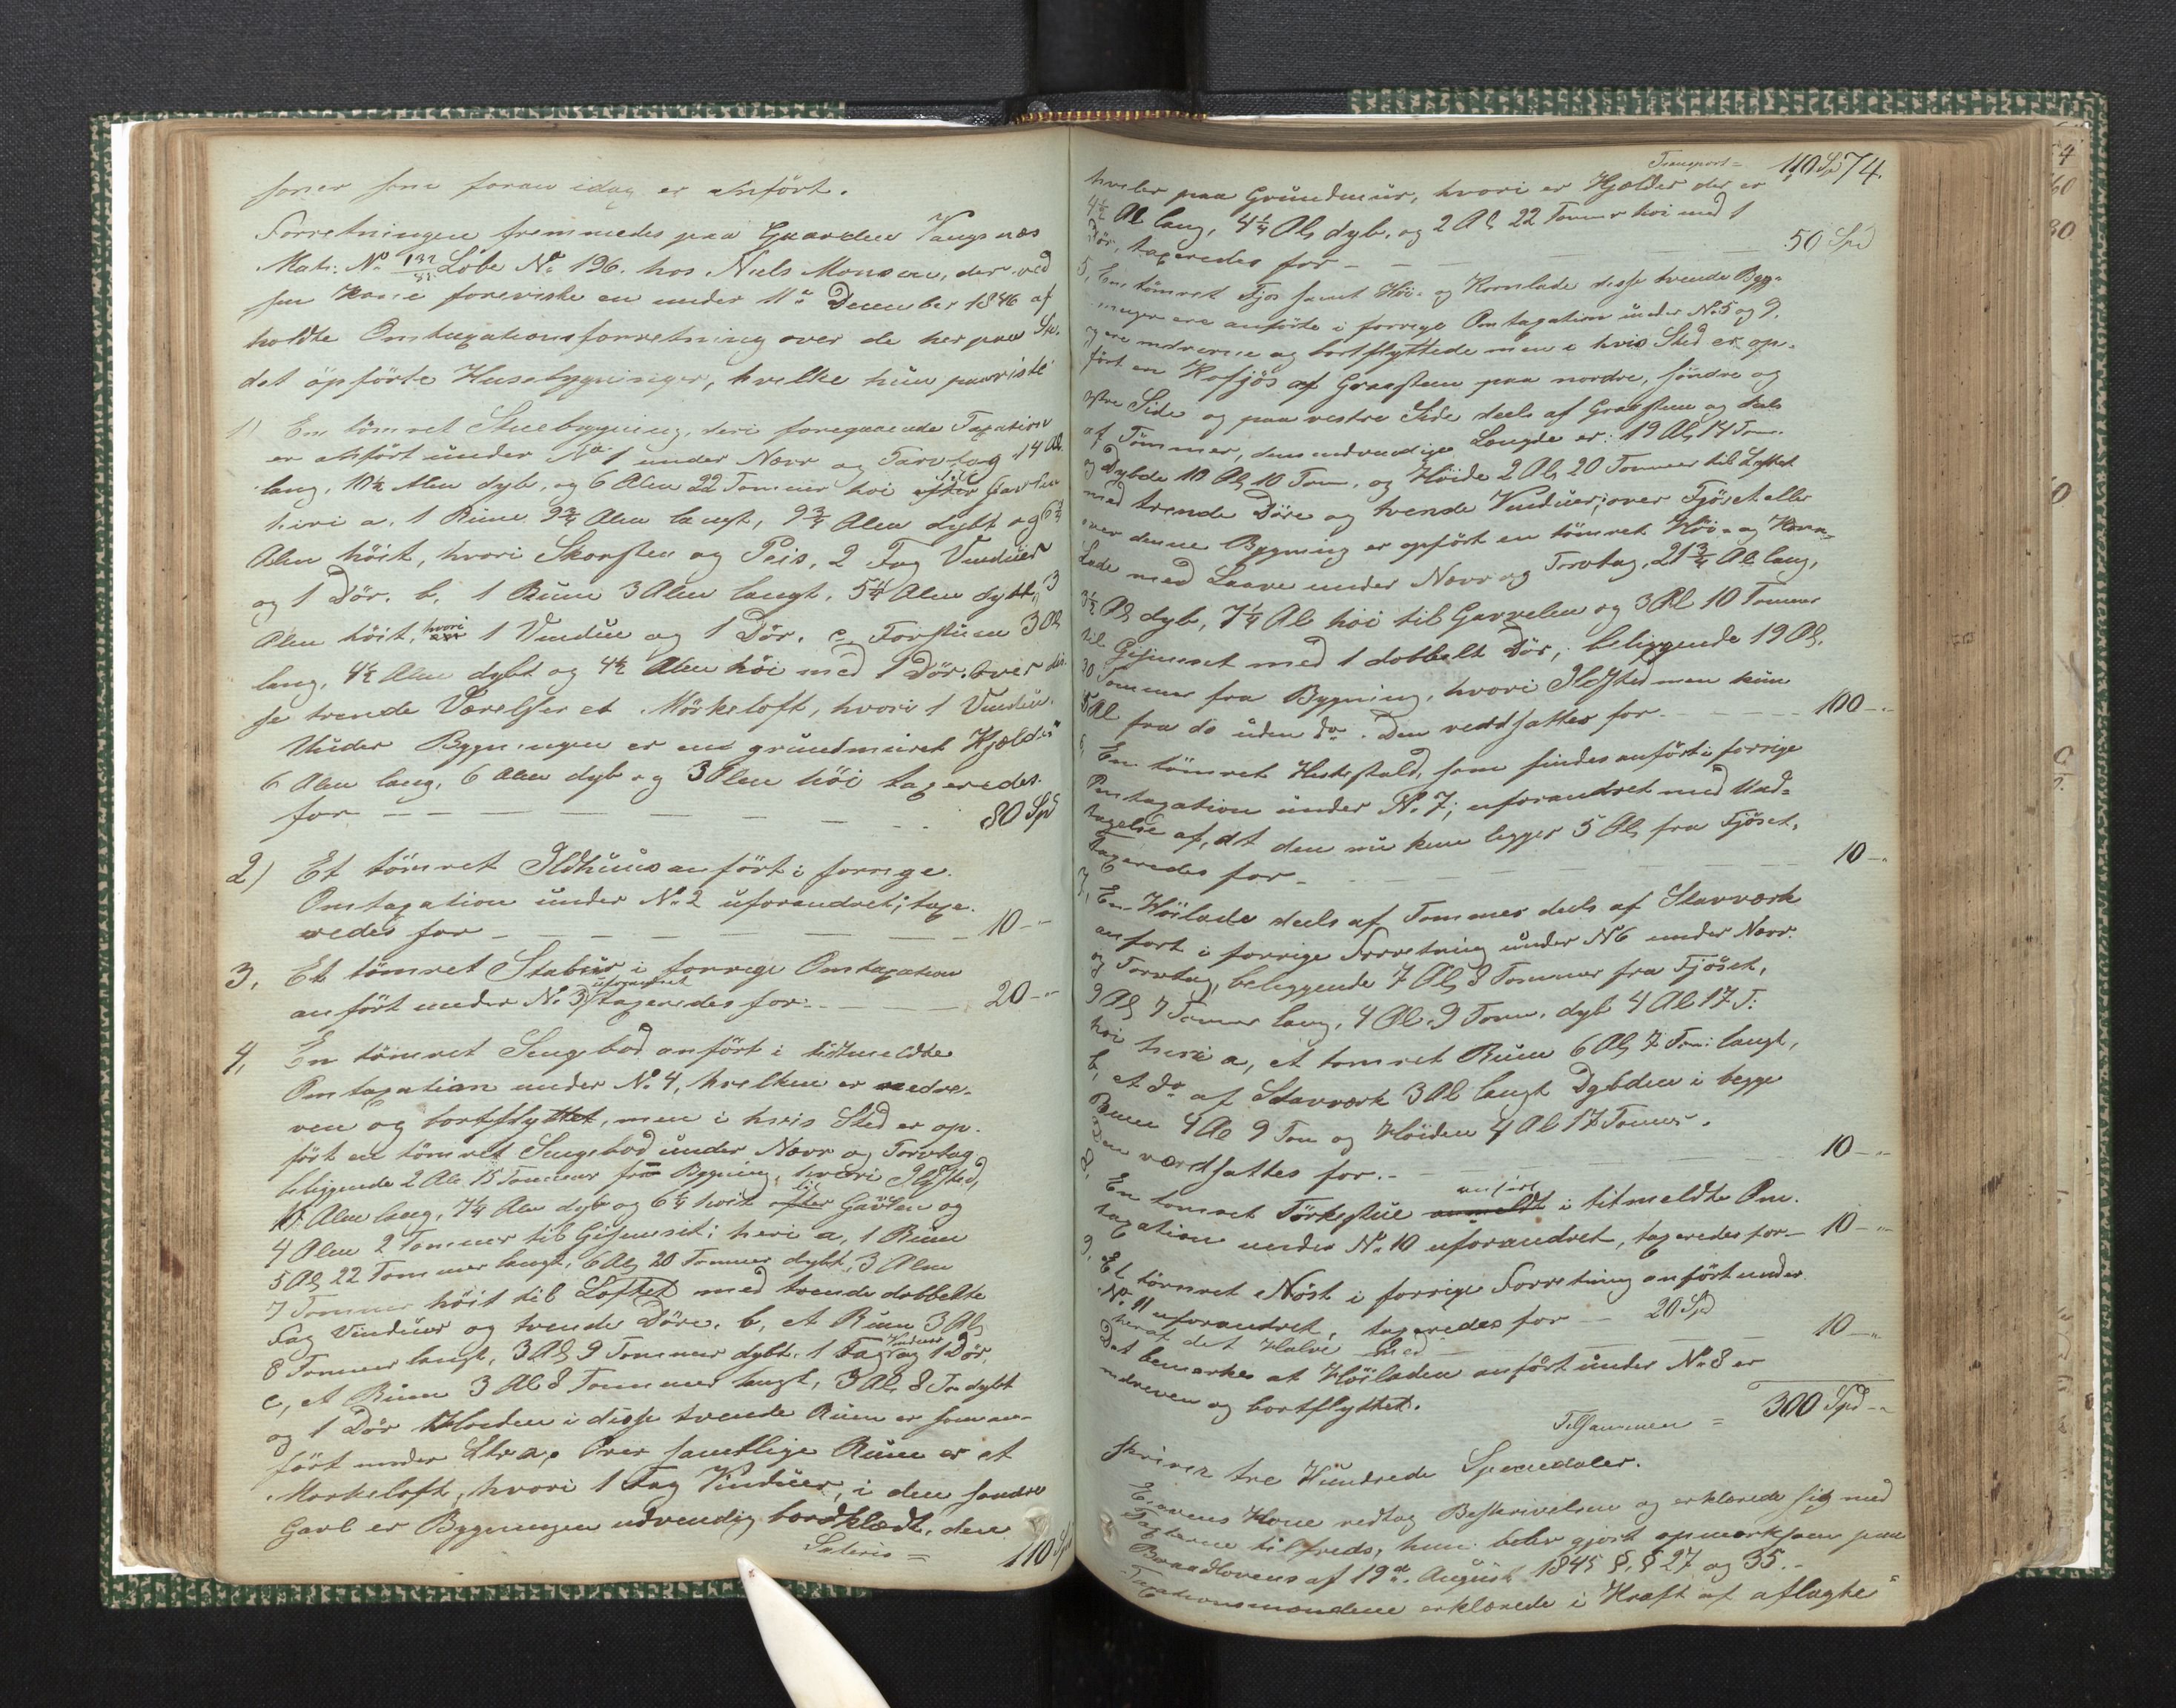 soner som foran idag er anført.
Forretningen fremmedes paa Gaarden Vangsnæs
Matr: No 132 Løbe No 196. hos Niels Monsen, der ved
sin Kone foreviste en under 11te December 1846 af
holdte Omtaxationsforretning over de her paa Ste-
det opførte Husebygninger, hvilke hun paaviste
1) En tømret Stuebygning, deri foregaaende Taxation
er anført under No 1 under Næver og Torvtag 14 Al.
lang, 10½ Alen dyb, og 6 Alen 22 Tommer høi efter til Gavlen
heri a. 1 Rum 9¾ Alen langt, 9¾ Alen dybt og 6¼
Alen høit, hvori Skorsten og Peis, 2 Fag Vinduer
og 1 Dør. b, 1 Rum 3 Alen langt, 5¼ Alen dybt, 3
Alen høit, hvori 1 Vindue og 1 Dør. c, Forstuen 3 Al
lang, 4½ Alen dybt og 4½ Alen høi med 1 Dør. Over dis-
se trende Værelser et Mørkeloft, hvori 1 Vindue.
Under Bygningen er en grundmuret Kjelder
6 Alen lang, 6 Alen dyb og 3 Alen høi taxeredes
for - - - 80 Spd
2.) Et tømret Ildhuus anført i forrige
Omtaxation under No 2 uforandret; taxe-
redes for - - - 10 - "
3, Et tømret Stabur i forrige Omtaxation
anført under No 3 uforandret taxeredes for - - - 20 - "
4, En tømret Sengebod anført i tidtmeldte
Omtaxation under No 4, hvilken er nedre-
ven og bortflyttet, men i hvis Sted er op-
ført en tømret Sengebod under Næver og Torvtag
beliggende 2 Ale 15 Tommer fra Bygning, hvori Ildsted,
11 Alen lang, 7¼ Alen dyb og 6¼ høit efter til Gavlen og
4 Alen 2 Tommer til Gesimsit; heri a, 1 Rum
5 Al, 22 Tommer langt, 6 Al, 20 Tommer dybt, 3 Alen
7 Tommer høit til Loftet med trende dobbelte
Fag Vinduer og trende Døre. b, et Rum 3 Al,
8 Tommer langt, 3 Al, 9 Tommer dybt, 1 Fag Vinduer og 1 Dør,
c, et Rum 3 Al 8 Tommer langt, 3 Al, 8 To dybt
og 1 Dør Høiden i disse tvende Rum er som an-
ført under Ltr a,. Over samtlige Rum er et
Mørkeloft, hvori 1 Fag Vinduer, i den søndre
Gavl er Bygningen udvendig bordklædt, den
Lateris = 110 Spd
Transport = 110 Sp 74.
hviler paa Grundmuur, hvori er Kjelder der er
4½ Al lang, 4¼ Al, dyb, og 2 Al, 22 Tommer høi med 1
Dør, taxeredes for - - - 50 Spd
5, En tømret Fjøs samt Høi- og Kornlade disse tvende Byg-
ninger ere anførte i forrige Omtaxation under No 5 og 9,
og ere nedrevne og bortflyttede men i hvis Sted er op-
ført en Kofjøs af Graasteen paa nordre, søndre og
østre Side og paa vestre Side deels af Graasteen og deels
af Tømmer, dens indvendige Længde er: 19 Al, 14 Tom.
og Dybde 10 Al, 10 Tom, og Høide 2 Al, 20 Tommer til Loftet
med trende Døre og tvende Vinduer; over Fjøset eller
over denne Bygning er opført en tømret Høi- og Korn-
Lade med Laave under Næver og Torvtag, 21¾ Al. lang,
3½ Al, dyb, 7¼ Al høi til Gavelen og 3 Al 10 Tommer
til Gesimset med 1 dobbelt Dør; beliggende 19 Al,
30 Tommer fra Bygning, hvori Ildsted men kun
5 Al fra do uden do. Den værdsattes for - - - 100 - "
6, En tømret Hestestald, som findes anført i forrige
Omtaxation under No 7; uforandret med Und-
tagelse af, at den nu kun legger 5 Al, fra Fjøset,
taxeredes for - - - 10 - "
7, En Høilade deels af Tømmer deels af Stavværk
anført i forrige Forretning under No 6 under Næver
og Torvtag, beliggende 7 Al, 8 Tommer fra Fjøset,
9 Al, 7 Tommer lang, 4 Al 9 Tom. dyb 4 Al 17 T:
høi heri a, et tømret Rum 6 Al, 7 Tom: langt,
b, et do af Stavværk 3 Al langt Dybden i begge
Rum 4 Al 9 Tom og Høiden 4 Al 17 Tommer.
Den værdsattes for. - - - 10 - "
8, En tømret Tørkestue anmeldt anført i titmeldte Om-
taxation under No 10 uforandret, taxeredes for - 10 - "
9, Et tømret Nøst i forrige Forretning anført under
No 11 uforandret, taxeredes for - 20 Spd
heraf det Halve med - - - 10 - "
Det bemærkes at Høiladen anført under No 8 er
nedreven og bortflyttet.
Tilsammen = 300 Spd - "
skriver tre Hundrede Speciedaler.
Eierens Kone vedtog Beskrivelsen og erklærede sig med
Taxterne tilfreds, hun blev gjort opmærksom paa
Brandlovens af 19de August 1845 §, § 27 og 35. -
Taxationsmændene erklærede i Kraft af aflagte